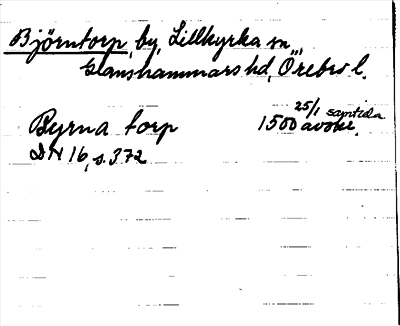 Björntorp, by, Lillkyrka sn,
Glanshammars hd, Örebro l.
25/1 samtida
Byrna torp 1500 avskr.
DN 16, s. 372